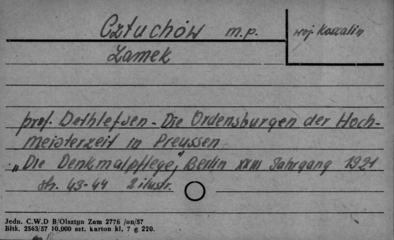 Człuchów m.p. woj Koszalin
Zamek
prof. Dethlefsen - Die Ordensburgen der Hoch-
meisterzeit in Preussen
"Die Denkmalpflege", Berlin XXIII Jahrgang 1921
str. 43-44 2 ilustr.
Jedn. C.W.D B/Olsztyn Zam 2776 /an/57
Błtk. 2563/57 10,000 szt. karton kl. 7 g 220.